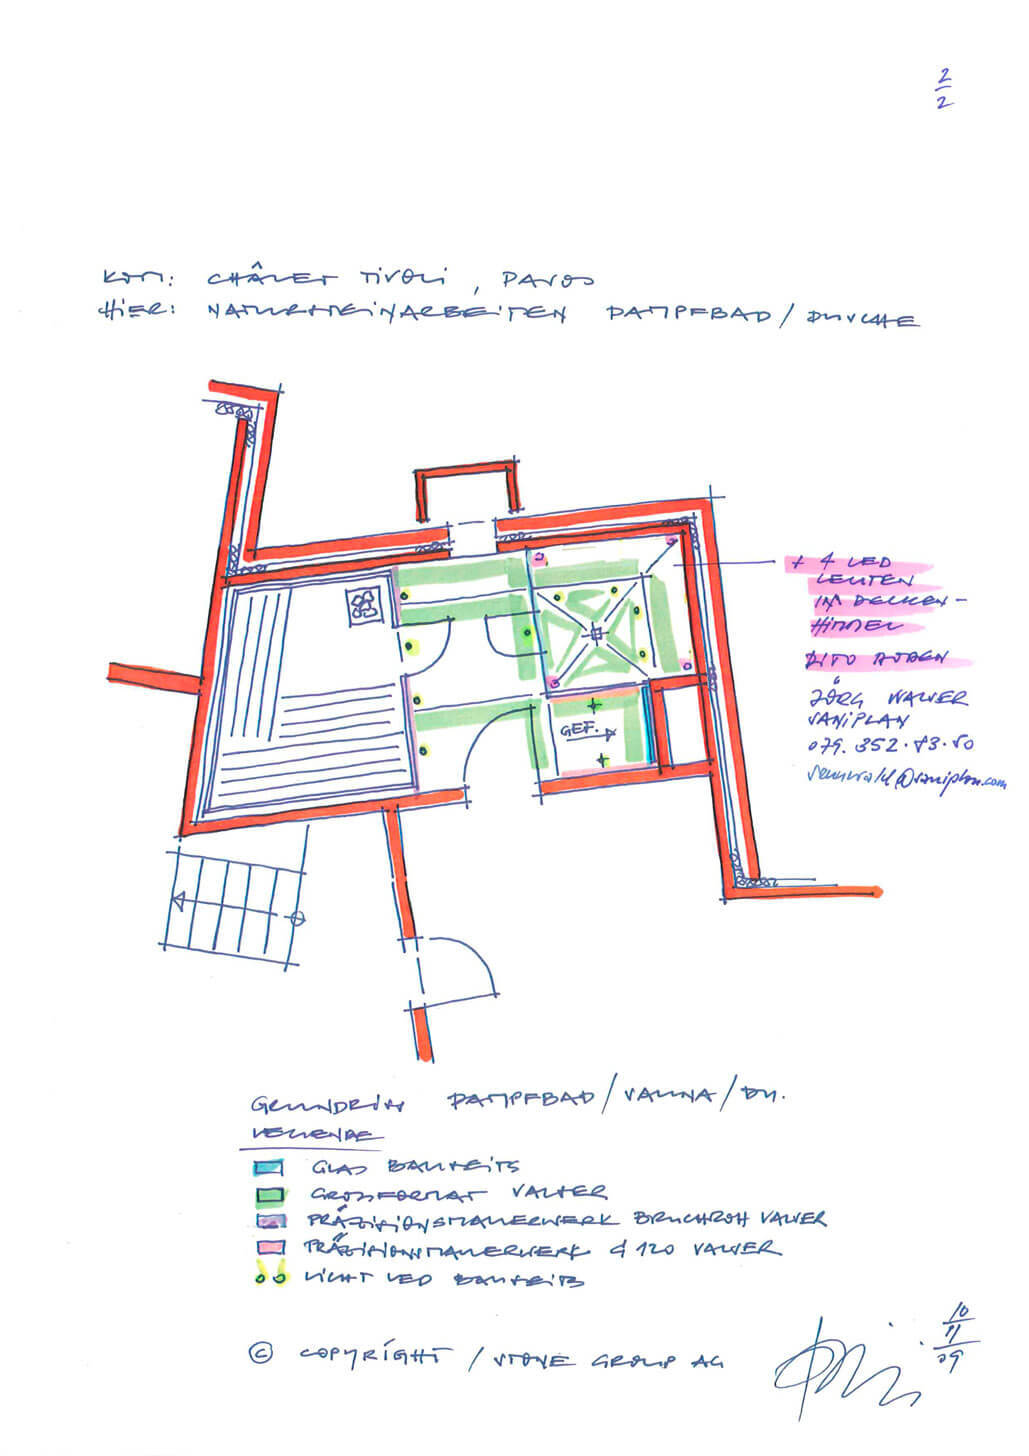 2
2
KOM: CHÂLET TIVOLI, DAVOS
HIER: NATURSTEINARBEITEN DAMPFBAD / DUSCHE
+ 4 LED
LEUTEN
IM DECKEN-
HIMMEL
DITO BODEN
JÖRG WALSER
SANIPLAN
079. 352.83.50
GEF.
GRUNDRISS DAMPFBAD / SAUNA / DU.
LEGENDE
GLAS BAUSEITS
GROSSFORMAT VALSER
PRÄZISIONSMAUERWERK BRUCHROH VALSER
PRÄZISIONSMAUERWERK C 120 VALSER
LICHT LED BAUSEITS
© COPYRIGHT / STONE GROUP AG
10
11
09